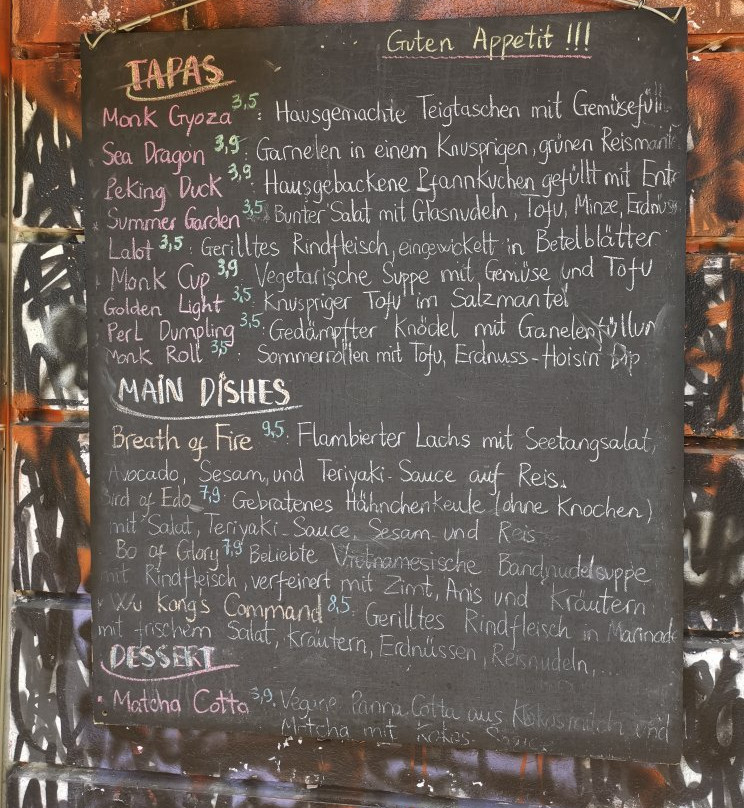 Guten Appetit !!!
TAPAS
Monk Gyoza 3,5 : Hausgemachte Teigtaschen mit Gemüsefüll
Sea Dragon 3,9 : Garnelen in einem Knusprigen, grünen Reismante
Peking Duck 3,9 : Hausgebackene Pfannkuchen gefüllt mit Ente
Summer Garden 3,5 : Bunter Salat mit Glasnudeln, Tofu, Minze, Erdnüss
Lalot 3,5 : Gerilltes Rindfleisch, eingewickelt in Betelblätter
Monk Cup 3,9 Vegetarische Suppe mit Gemüse und Tofu
Golden Light 3,5 : Knuspriger Tofu im Salzmantel
Perl Dumpling 3,5 : Gedämpfter Knödel mit Ganelenfüllun
Monk Roll 3,5 : Sommerrollen mit Tofu, Erdnuss-Hoisin Dip
MAIN DISHES
Breath of Fire 9,5 : Flambierter Lachs mit Seetangsalat,
Avocado, Sesam, und Teriyaki-Sauce auf Reis.
Bird of Edo 7,9 : Gebratenes Hähnchenkeule (ohne Knochen)
mit Salat, Teriyaki-Sauce, Sesam und Reis
Bo of Glory 7,9 Beliebte Vietnamesische Bandnudelsuppe
mit Rindfleisch, verfeinert mit Zimt, Anis und Kräutern
Wu Kong's Command 8,5 : Gerilltes Rindfleisch in Marinade
mit frischem Salat, Kräutern, Erdnüssen, Reisnudeln,...
DESSERT
Matcha Cotta 3,9 : Vegane Panna Cotta aus Kokosmilch und
Matcha mit Kokos-